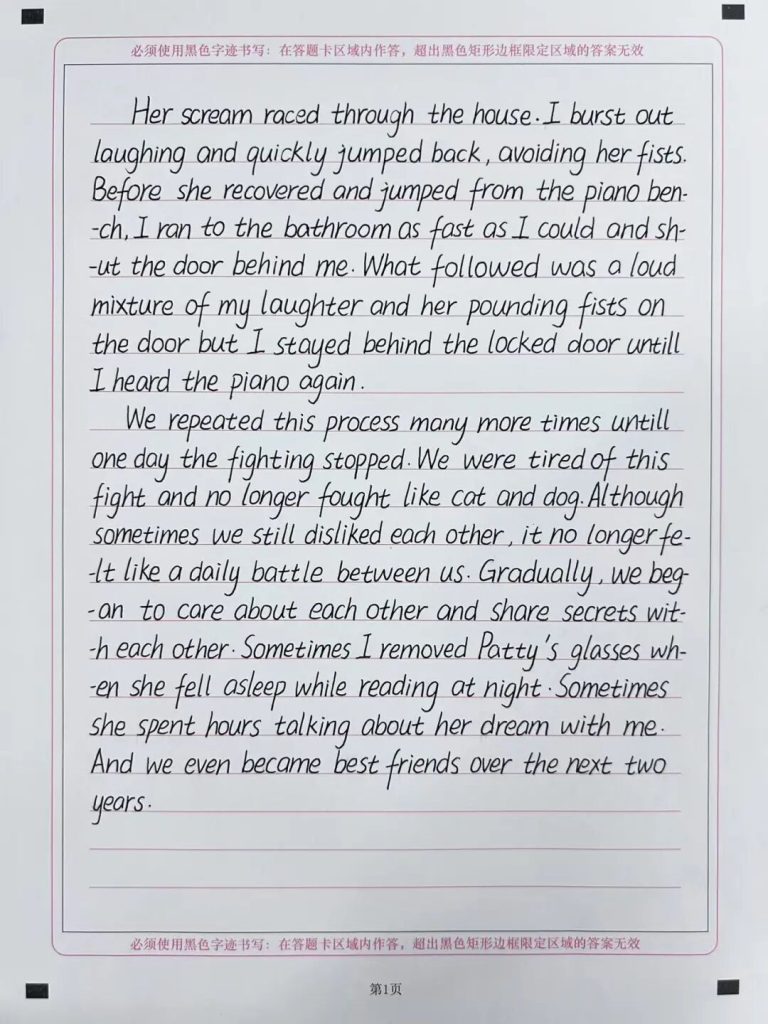 必须使用黑色字迹书写：在答题卡区域内作答，超出黑色矩形边框限定区域的答案无效
Her scream raced through the house. I burst out
laughing and quickly jumped back, avoiding her fists.
Before she recovered and jumped from the piano ben-
-ch, I ran to the bathroom as fast as I could and sh-
-ut the door behind me. What followed was a loud
mixture of my laughter and her pounding fists on
the door but I stayed behind the locked door untill
I heard the piano again.
We repeated this process many more times untill
one day the fighting stopped. We were tired of this
fight and no longer fought like cat and dog. Although
sometimes we still disliked each other, it no longer fe-
-lt like a daily battle between us. Gradually, we beg-
-an to care about each other and share secrets wit-
-h each other. Sometimes I removed Patty's glasses wh-
-en she fell asleep while reading at night. Sometimes
she spent hours talking about her dream with me.
And we even became best friends over the next two
years.
必须使用黑色字迹书写：在答题卡区域内作答，超出黑色矩形边框限定区域的答案无效
第1页